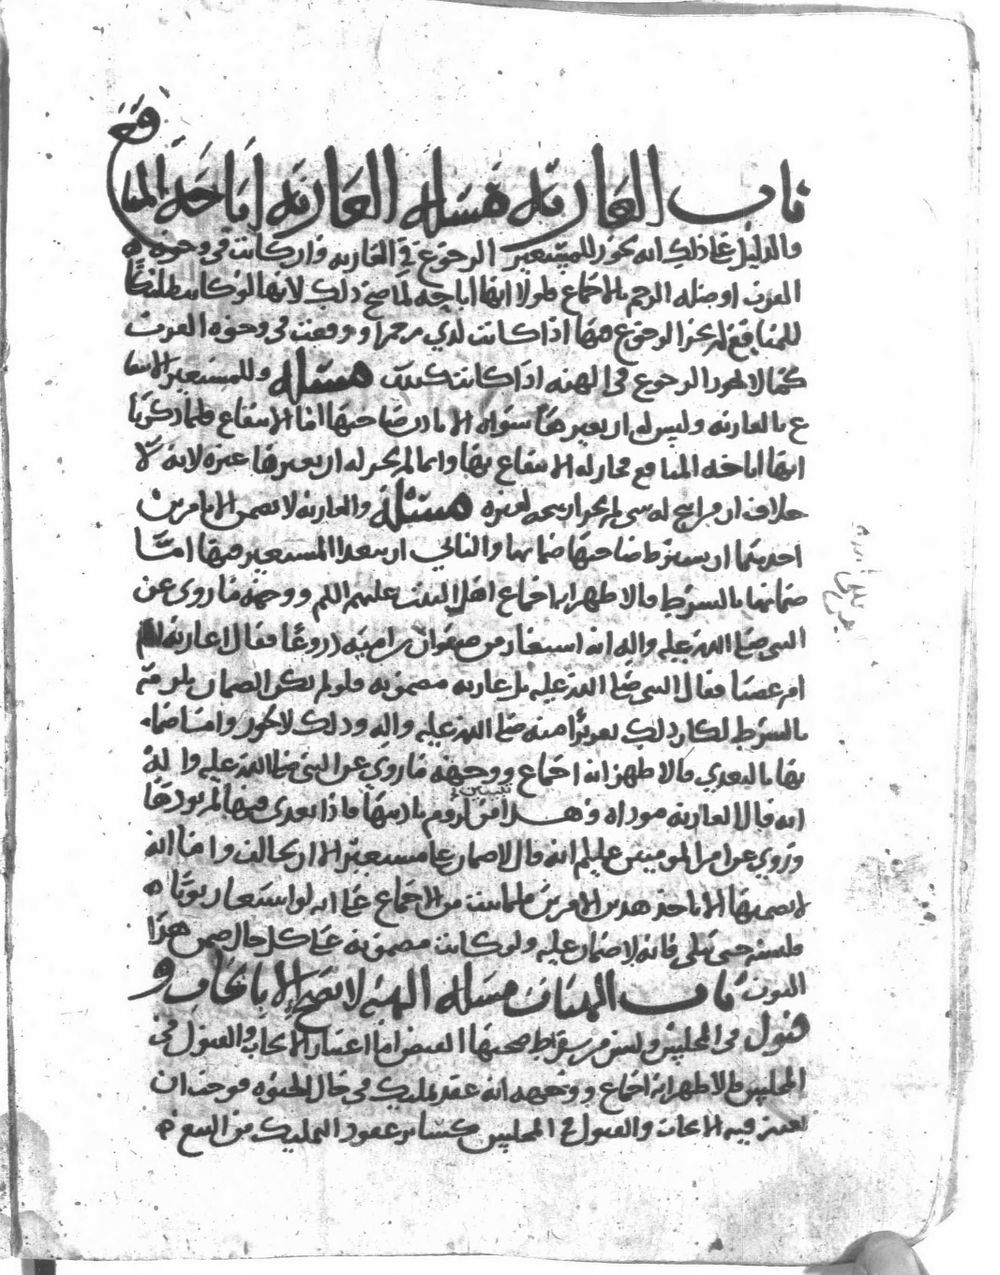 باب العارية مسألة العارية إباحة المنافع
والدليل على ذلك انه يجوز للمستعير الرجوع في العارية وان كانت في وجوه
القرب او صلة الرحم بالاجماع فلولا انها اباحة لما صح ذلك لانها لو كانت تمليكا
للمنافع لم يجز الرجوع فيها اذا كانت لذي رحم او وقعت في وجوه القرب
كما لا يجوز الرجوع في الهبة اذا كانت كذلك مسألة وللمستعير الانتفا
ع بالعارية وليس له ان يعيرها سواه الا باذن صاحبها اما الانتفاع فلما ذكرنا
انها اباحة المنافع فجاز له الانتفاع بها وانما لم يجز له ان يعيرها غيره لانه لا
خلاف ان من ابيح له شي لم يجز ان يبيحه لغيره مسألة والعارية لا تضمن الا بامرين
احدهما ان يشترط صاحبها ضمانها والثاني ان يتعدا المستعير فيها اما
ضمانها بالشرط فالاظهر انه اجماع اهل البيت عليهم السلم ووجهه ما روي عن
النبي صلى الله عليه واله انه استعار من صفوان بن امية دروعا فقال اعارية
ام غصبا فقال النبي صلى الله عليه بل عارية مضمونة فلو لم يكن الضمان يلزمه
بالشرط لكان ذلك تغريرا منه صلى الله عليه واله وذلك لا يجوز واما ضما
نها بالتعدي فالاظهر انه اجماع ووجهه ما روي عن النبي صلى الله عليه واله
انه قال العارية موداة وهذا امر لزوم تاديتها فاذا تعدى فيها لم يودها
وروي عن امير المومنين عليلم انه قال لا ضمان على مستعير الا ان يخالف واما انه
لا يضمنها الا باحد هذين الامرين فلما ثبت من الاجماع على انه لو استعار ثوبا
فلبسه حتى بلي فانه لا ضمان عليه ولو كانت مضمونة على كل حال ضمن هذا
الثوب باب الهبات مسألة الهبة لا تصح الا بايجاب و
قبول في المجلس وليس من شرط صحتها القبض اما اعتبار الايجاب والقبول في
المجلس فالاظهر انه اجماع ووجهه انه عقد تمليك في حال الحيوه فوجب ان
يعتبر فيه الايجاب والقبول في المجلس كسائر عقود التمليك من البيع